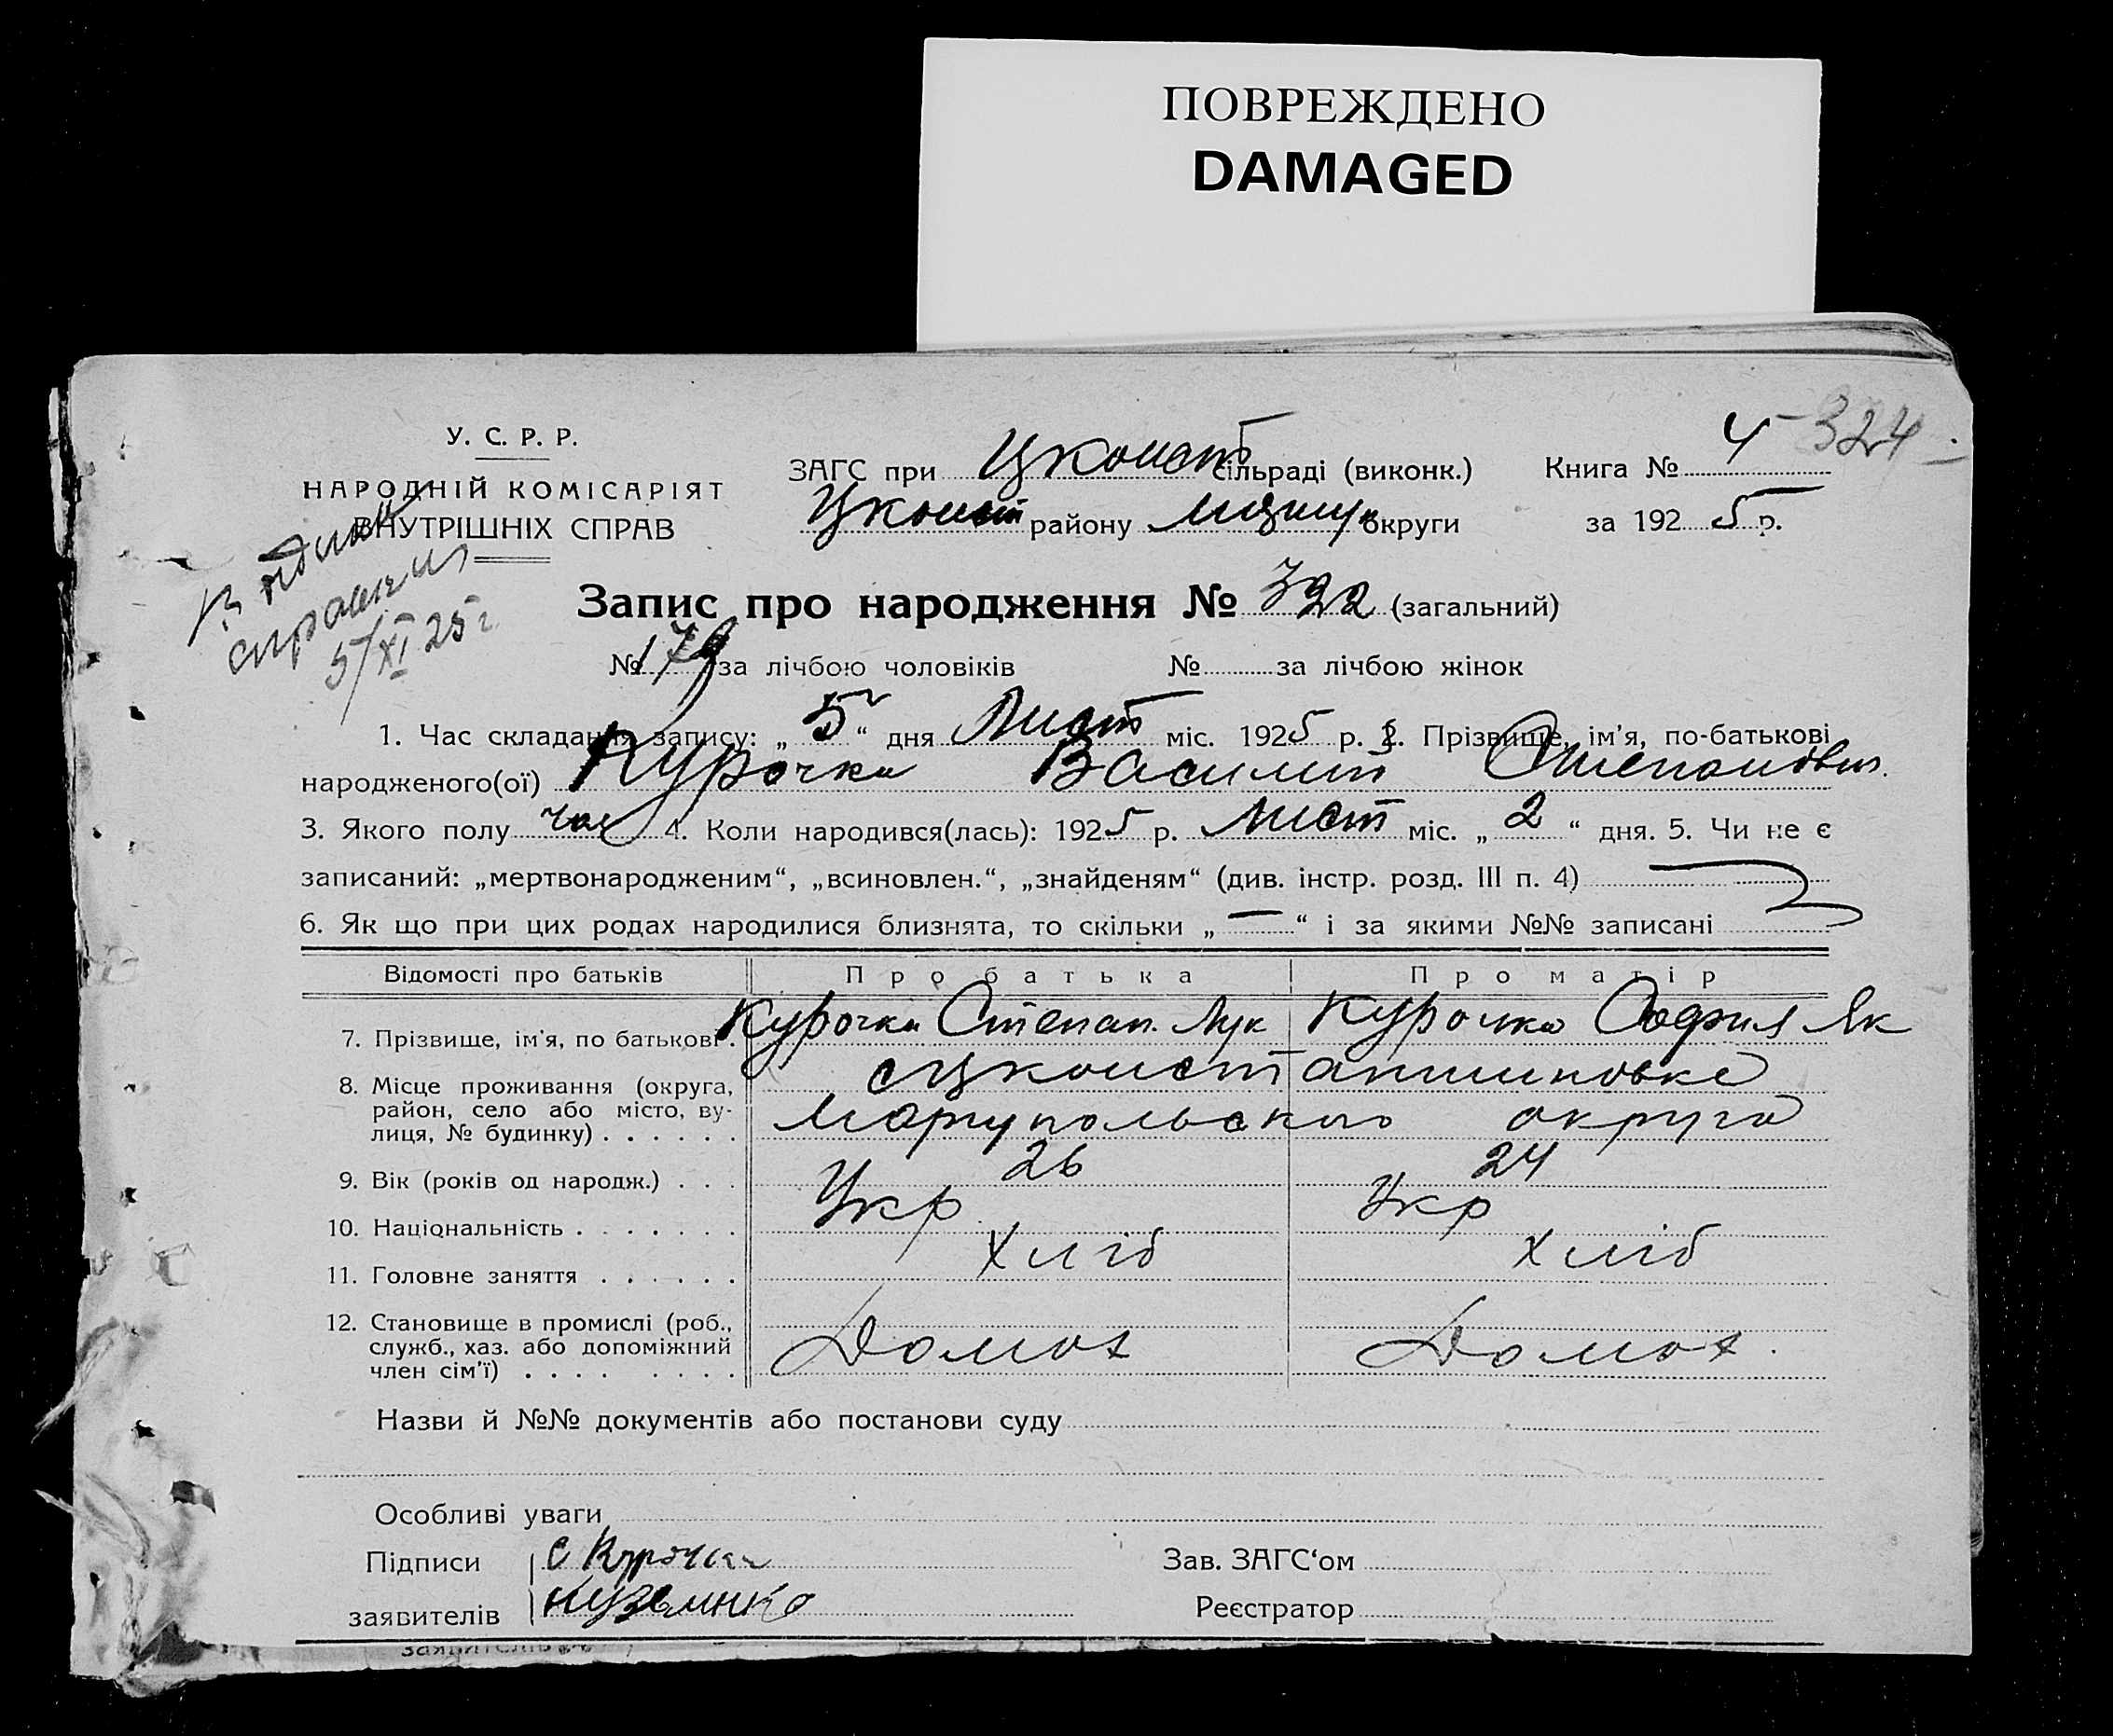 ПОВРЕЖДЕНО
DAMAGED
У. С. Р. Р.
НАРОДНІЙ КОМІСАРІЯТ
ВНУТРІШНІХ СПРАВ
324
ЗАГС при Цконст сільраді (виконк.) Книга №
Цконст району округи за 1925 р.
5/XI 25 г
Запис про народження № 322 (загальний)
№ 179 за лічбою чоловіків № за лічбою жінок
1. Час складання запису: „ 5 “ дня Лист міс. 1925 р. 2. Прізвище, ім'я, по-батькові
народженого(ої) Курочка Василит Степанович
3. Якого полу чол 4. Коли народився(лась): 1925 р. Лист міс. „ 2 “ дня. 5. Чи не є
записаний: „мертвонародженим“, „всиновлен.“, „знайденям“ (див. інстр. розд. III п. 4)
6. Як що при цих родах народилися близнята, то скільки „ — “ і за якими №№ записані
Відомості про батьків Про батька Про матір
7. Прізвище, ім'я, по батькові. Курочка Степан. Лук Курочка София Як
8. Місце проживання (округа, район, село або місто, вулиця, № будинку) . . . . . . с Цконстантиновке
Мариупольского округа
9. Вік (років од народж.) . . . 26 24
10. Національність . . . . . . . Укр Укр
11. Головне заняття . . . . . . Хліб Хліб
12. Становище в промислі (роб., служб., хаз. або допоміжний член сім'ї) . . . . . . . . Домох Домох.
Назви й №№ документів або постанови суду
Особливі уваги
Підписи С Курочка Зав. ЗАГС‘ом
заявителів Кузьминко Реєстратор